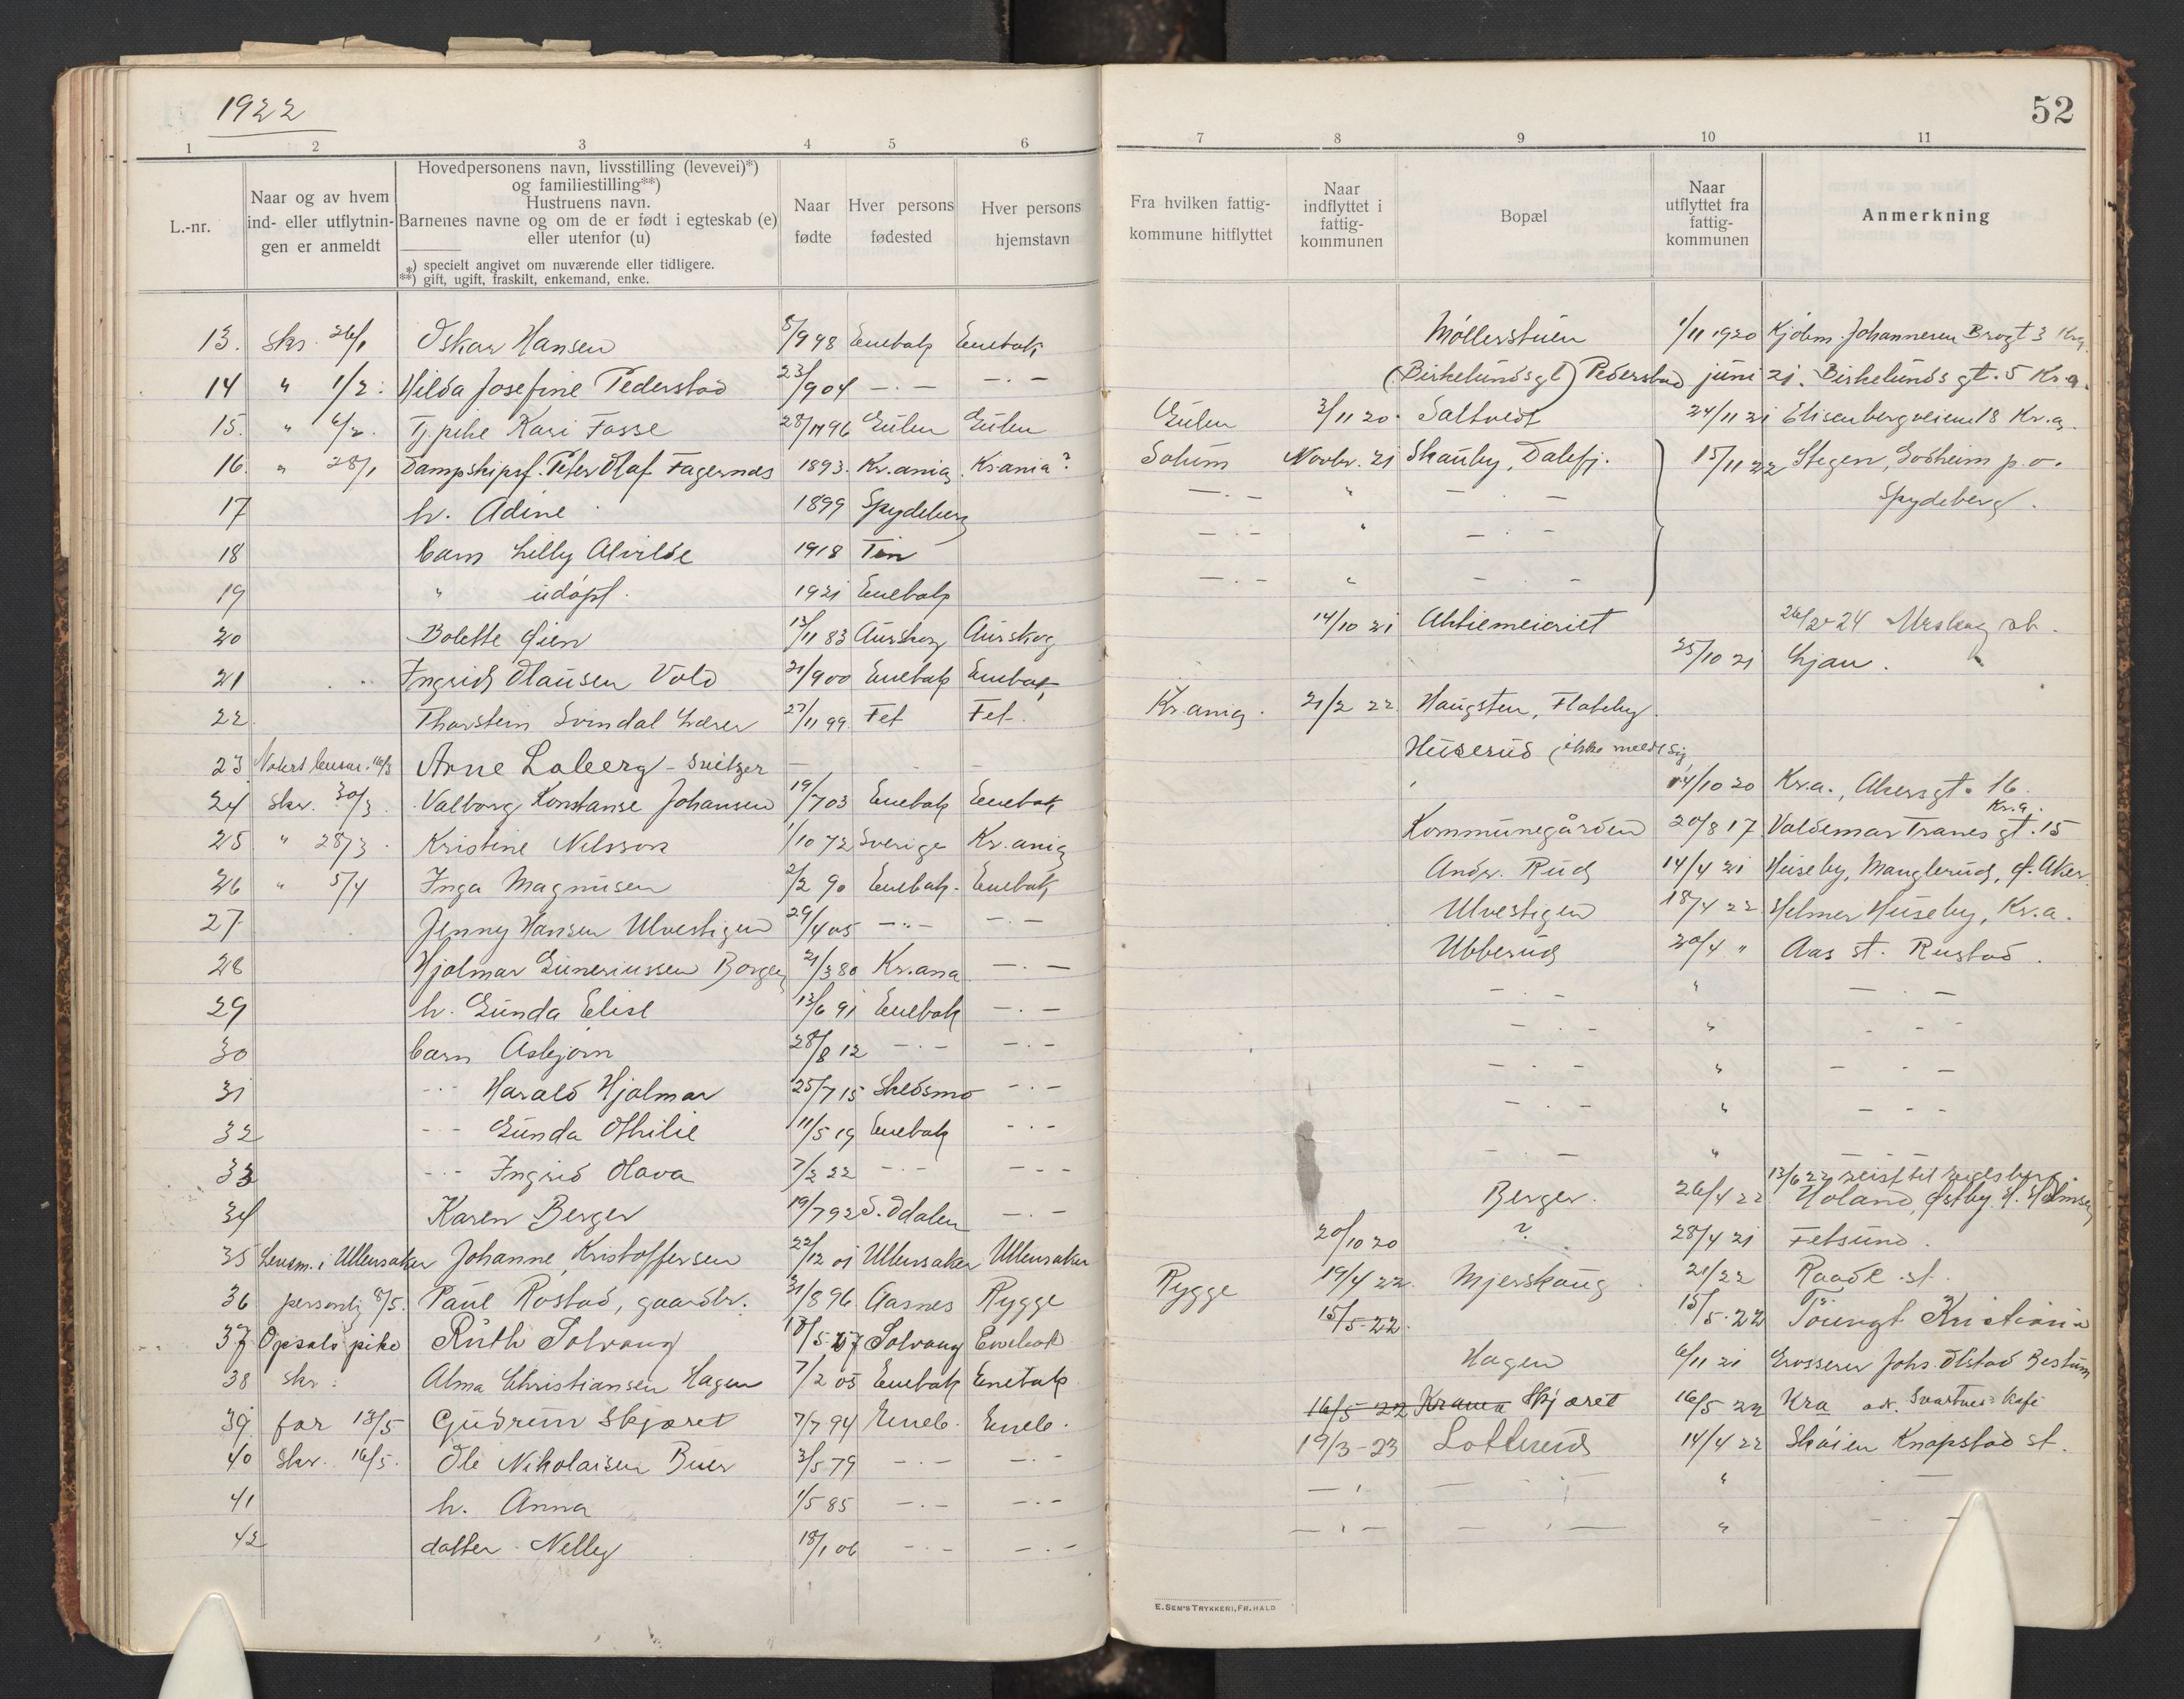 1922
52
1 2 3 4 5 6 7 8 9 10 11
L.-nr.
Naar og av hvem
ind- eller utflytnin-
gen er anmeldt
Hovedpersonens navn, livsstilling (levevei)*)
og familiestilling**)
Hustruens navn.
Barnenes navne og om de er født i egteskab (e)
eller utenfor (u)
*) specielt angivet om nuværende eller tidligere.
**) gift, ugift, fraskilt, enkemand, enke.
Naar
fødte
Hver persons
fødested
Hver persons
hjemstavn
Fra hvilken fattig-
kommune hitflyttet
Naar
indflyttet i
fattig-
kommunen
Bopæl
Naar
utflyttet fra
fattig-
kommunen
Anmerkning
13. Skr. 26/1 Oskar Hansen 5/9 98 Enebak Enebak Möllerstuen 1/11 1920 Kjöbm. Johannesen Brogt 3 Kra.
14 " 1/2. Hilda Josefine Pederstad 23/9 04 -.- -.- (Birkelundsgt) Pederstad juni 21. Birkelunds gt. 5 Kr.a.
15. " 6/2. Tj. pike Kari Fosse 28/11 96 Eulen Eulen Eulen 3/11 20. Saltvedt 24/11 21 Elisenbergveien 18 Kr.a.
16. " 28/1 Dampskipsf. Peter Olaf Fagernæs 1893. Kr.ania. Krania? Solum Novbr. 21 Skauby, Dalefj. 15/11 22 Stegen, Sodheim p.o.
17 h. Adine 1899 Spydeberg -.- " -.- Spydeberg.
18 barn Lilly Alvilde 1918 Tin -.- " -.-
19 " udöpt. 1921 Enebak -.- " -.-
20 Bolette Öien 13/11 83 Aurskog Aurskog 14/10 21 Aktiemeieriet 26/2-24 Urskog
21 Ingrid Olausen Vold 21/9 00 Enebak Enebak 25/10 21 Ljan.
22 Thorstein Svindal Lærer 27/11 99 Fet Fet. Kr.ania. 21/2 22. Haugsten, Flateby.
23 16/3 Arne Loberg - sveitzer - - - Huserud (ikke meldt sig
24 Skr. 30/3. Valborg Konstanse Johansen 19/7 03 Enebak Enebak 14/10 20 Kr.a., Akersgt. 16.
25 " 28/3. Kristine Nilsson 1/10 72 Sverige Kr.ania Kommunegården 20/8 17 Valdemar Tranes gt. 15 Kr.a.
26 " 5/4 Inga Magnusen 2/2 90 Enebak. Enebak Andr. Rud 14/4 21 Huseby, Manglerud, Ö. Aker.
27 Jenny Hansen Ulvestigen 29/4 05 -.- -.- Ulvestigen 18/4 22 Helmer Huseby, Kr.a.
28 Hjalmar Guneriussen Borgen 21/3 80 Kr.ana -.- Ubberud 20/4 " Aas st. Rustad.
29 h. Gunda Elise 13/6 91 Enebak -.- -.- " -.-
30 barn Asbjörn 28/8 12 -.- -.- -.- " -.-
31 -.- Harald Hjalmar 25/7 15 Skedsmo -.- -.- " -.-
32 -.- Gunda Othilie 11/5 19 Enebak -.- -.- " -.-
33 -.- Ingrid Olava 7/2 22 -.- -.- -.- " -.-
34 Karen Berger 19/7 92 S. Odalen -.- Berger. 26/4 22 13/6 22 reist til Höland, Östby.
35 Lensm. i Ullensaker Johanne Kristoffersen 22/12 01 Ullensaker Ullensaker 20/10 20 ? 28/4 21 Fetsund.
36 personlig 8/5. Paul Rostad, gaardbr. 31/8 96 Aasnes Rygge Rygge 19/4 22. Mjerskaug 21/22 Raade st.
37 Opsals pike Ruth Solvang 18/5-07 Solvang Enebak 15/5-22. 15/5-22 Töiengt Kristiania
38 Skr. Alma Christiansen Hagen 7/2 05 Enebak Enebak Hagen 6/11 21 Grosserer Johs. Olstad Bestum
39. far 13/5 Gudrun Skjæret 7/7 94 Eneb. Eneb. 16/5-22 Krania Skjæret 16/5 22 Kra adr. Svartnes Kafe
40 Skr. 16/5. Ole Nikolaisen Buer 3/5 79 -.- -.- 19/3-23 Lotterud 14/4 22 Sköien Knapstad st.
41 h. Anna 1/5 85 -.- -.- -.- -.- " -.-
42 datter Nelly 18/1 06 -.- -.- -.- -.- " -.-
E. SEM'S TRYKKERI, FR.HALD